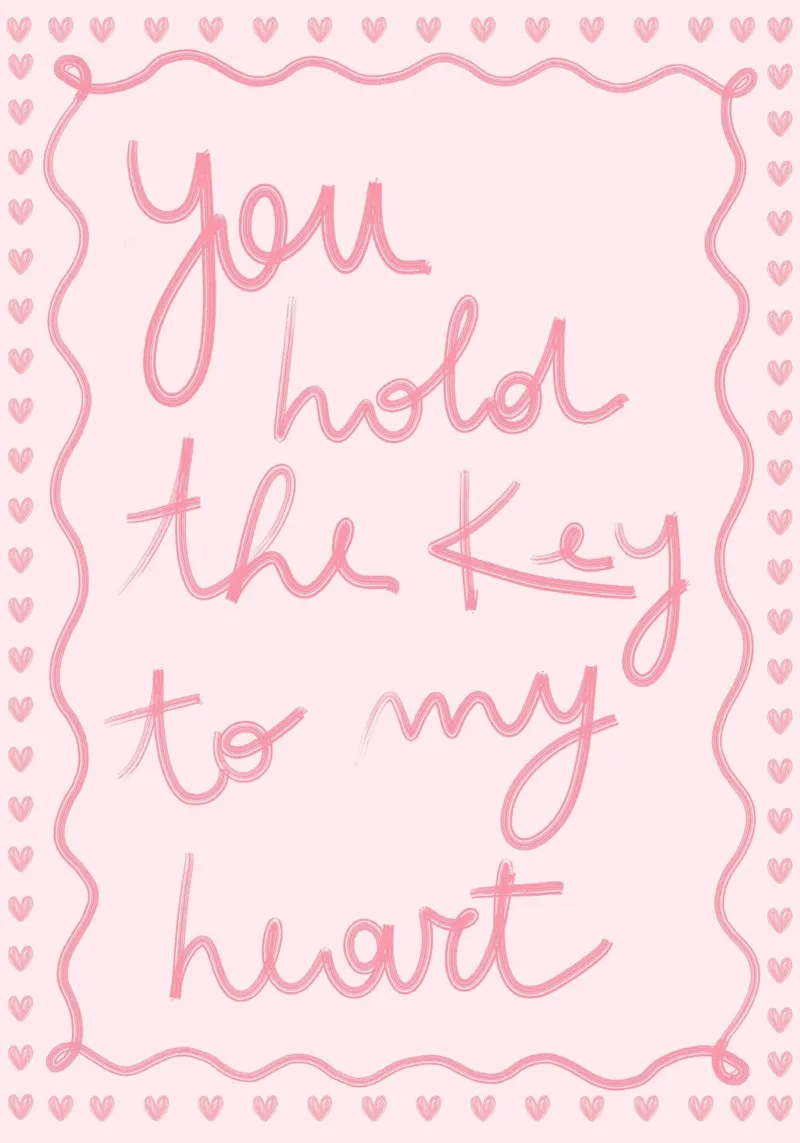 you
hold
the key
to my
heart